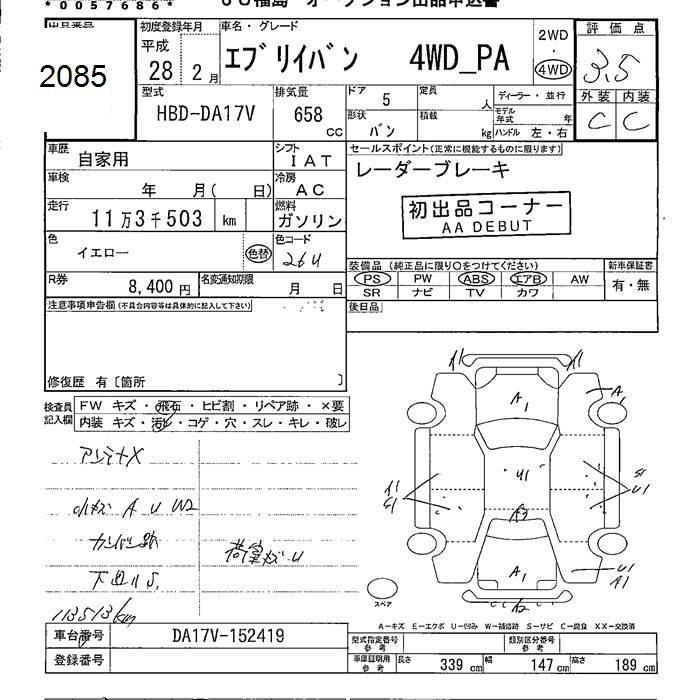 *0057686*
JU福島 オークション出品申込書
出品番号
2085
初度登録年月
平成
28 2 月
車名・グレード
エブリイバン 4WD_PA
2WD
・
4WD
評価点
3.5
外装 内装
C C
型式
HBD-DA17V
排気量
658
cc
ドア 5
形状
バン
定員
人
積載
kg
ディーラー・並行
モデル年式 年
ハンドル 左・右
車歴
自家用
シフト
IAT
車検
年 月( 日)
冷房
AC
走行
11万3千503 km
燃料
ガソリン
色
イエロー
色替
色コード
26U
R券
8,400 円
名変通知期限
月 日
セールスポイント(正常に機能するものに限ります)
レーダーブレーキ
初出品コーナー
AA DEBUT
装備品(純正品に限り○をつけてください)
PS PW ABS エアB AW
SR ナビ TV カワ
新車保証書
有・無
後日品
注意事項申告欄(不具合内容等は具体的に記入して下さい)
修復歴 有〔箇所 〕
検査員
記入欄
FW キズ・飛石・ヒビ割・リペア跡・×要
内装 キズ・汚れ・コゲ・穴・スレ・キレ・破レ
アンテナX
小キズ A U W2
カンバン跡
荷室キズ U
下回りS,
113513km
A1
A1
A
A1
U1
A1
S1
S1
U1
A2
A1
U1
A1
A2
スペア
A－キズ E－エクボ U－凹み W－補修跡 S－サビ C－腐食 XX－交換済
車台番号
DA17V-152419
登録番号
型式指定番号
参考
類別区分番号
参考
車庫証明用
参考
長さ 339 cm 幅 147 cm 高さ 189 cm